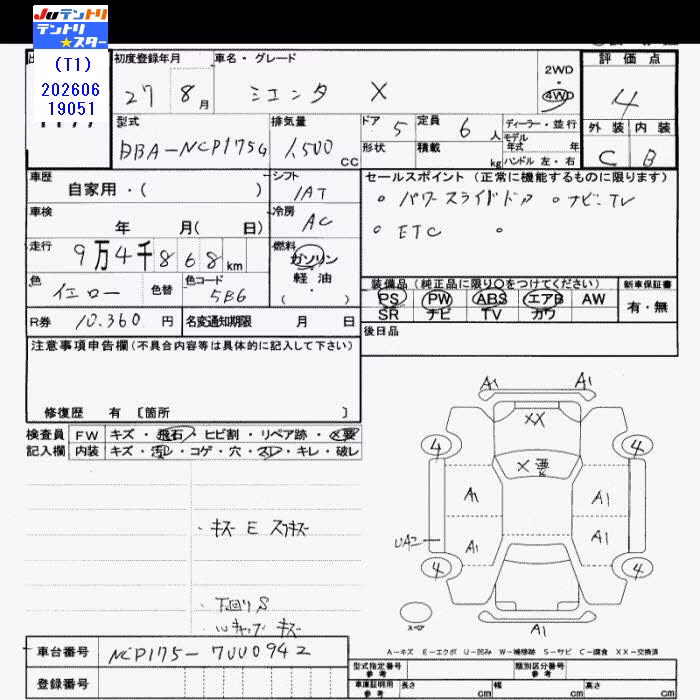 JUテントリ
テントリ
★スター
(T1)
202606
19051
初度登録年月
27 8月
車名・グレード
シエンタ X
2WD
・
4WD
評価点
4
外装 内装
C B
型式
DBA-NCP175G
排気量
1,500 CC
ドア 5
形状
定員 6 人
積載 kg
ディーラー・並行
モデル年式 年
ハンドル 左・右
車歴
自家用・( )
シフト
IAT
車検
年 月( 日)
冷房
AC
走行
9万4千868km
燃料
ガソリン
軽油
・( )
色
イエロー
色替
色コード
5B6
R券 10,360 円
名変通知期限 月 日
セールスポイント (正常に機能するものに限ります)
。パワースライドドア 。ナビ・TV
。ETC 。
装備品 (純正品に限り○をつけてください)
PS PW ABS エアB AW
SR ナビ TV カワ
新車保証書
有・無
後日品
注意事項申告欄 (不具合内容等は具体的に記入して下さい)
修復歴 有 [箇所 ]
検査員
記入欄
FW キズ・飛石・ヒビ割・リペア跡・×要
内装 キズ・汚レ・コゲ・穴・スレ・キレ・破レ
・キズ E スリキズ
・下回りS
・Wキャップ キズ
A1 A1
XX
4 4
×要
A1 A1
UA2 A1 A1
4 4
スペア
A1
A-キズ E-エクボ U-凹み W-補修跡 S-サビ C-腐食 XX-交換済
車台番号 NCP175-7000942
登録番号
型式指定番号
参考
類別区分番号
参考
車庫証明用
参考
長さ cm 幅 cm 高さ cm